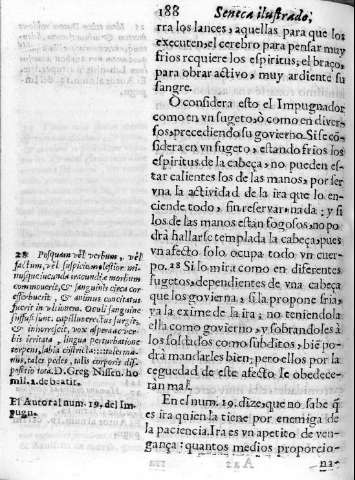 188 Seneca ilustrado,
rra los lances, aquellas para que los
executen, el cerebro para pensar muy
frios requiere los espiritus; el braço,
para obrar activo, muy ardiente su
sangre.
O considera esto el Impugnador
como en vn sugeto, ò como en diver-
sos, precediendo su govierno. Si se cõ-
sidera en vn sugeto, estando frios los
espiritus de la cabeça, no pueden es-
tar calientes los de las manos, por ser
vna la actividad de la ira que lo en-
ciende todo, sin reservar nada; y si
los de las manos estàn fogosos, no po-
drà hallarse templada la cabeça, pues
vn afecto solo ocupa todo vn cuer-
po. 28 Si lo mira como en diferentes
sugetos, dependientes de vna cabeça
que los govierna, si la propone fria,
ya la exime de la ira; no teniendola
ella como govierno, y sobrandoles à
los soldados como subditos, biẽ po-
drà mandarles bien; pero ellos por la
ceguedad de este afecto le obedece-
ràn mal.
En el num. 19. dize, que no sabe q̃
es ira quien la tiene por enemiga de
la paciencia. Ira es vn apetito de ven-
gança: quantos medios proporcio-
na-
28 Posquam vel verbum, vel
factum, vel suspicio molestior
animum
commoverit, &amp; sanguinis circa cor
&amp; animus concitatus
fuerit in vltionem. Oculi sanguine
lingua perturbatione
D. Greg. Nissen. ho
mil. 2. de beatit.
El Autor al num. 19. del Im-
pugn.